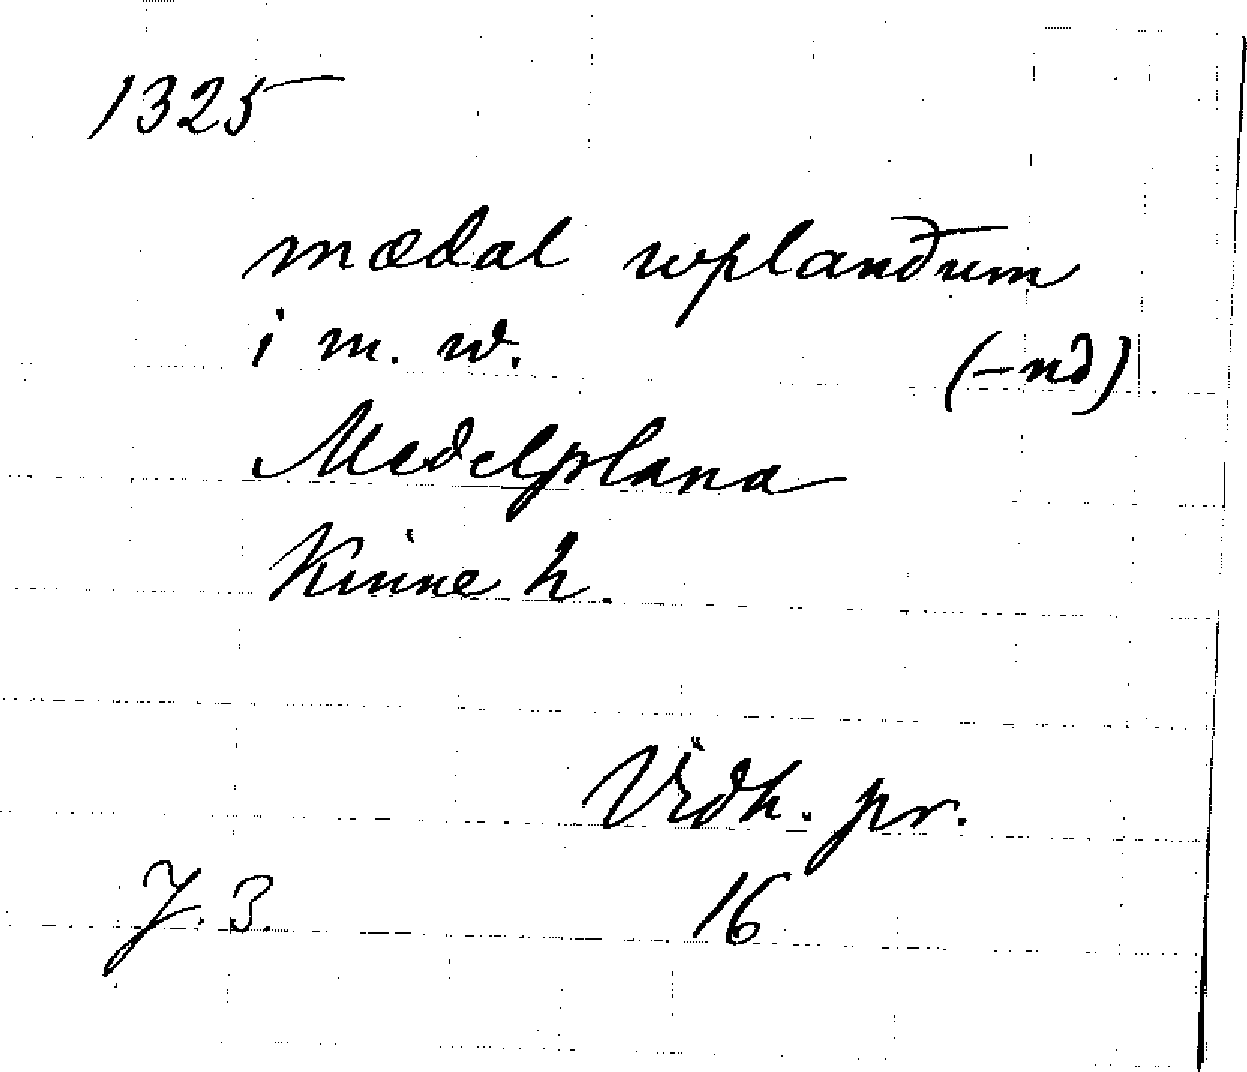 1325
mædal wplandum
i m. w. (-nd)
Medelplana
Kinne h.
Vidh. pr.
J. 3. 16